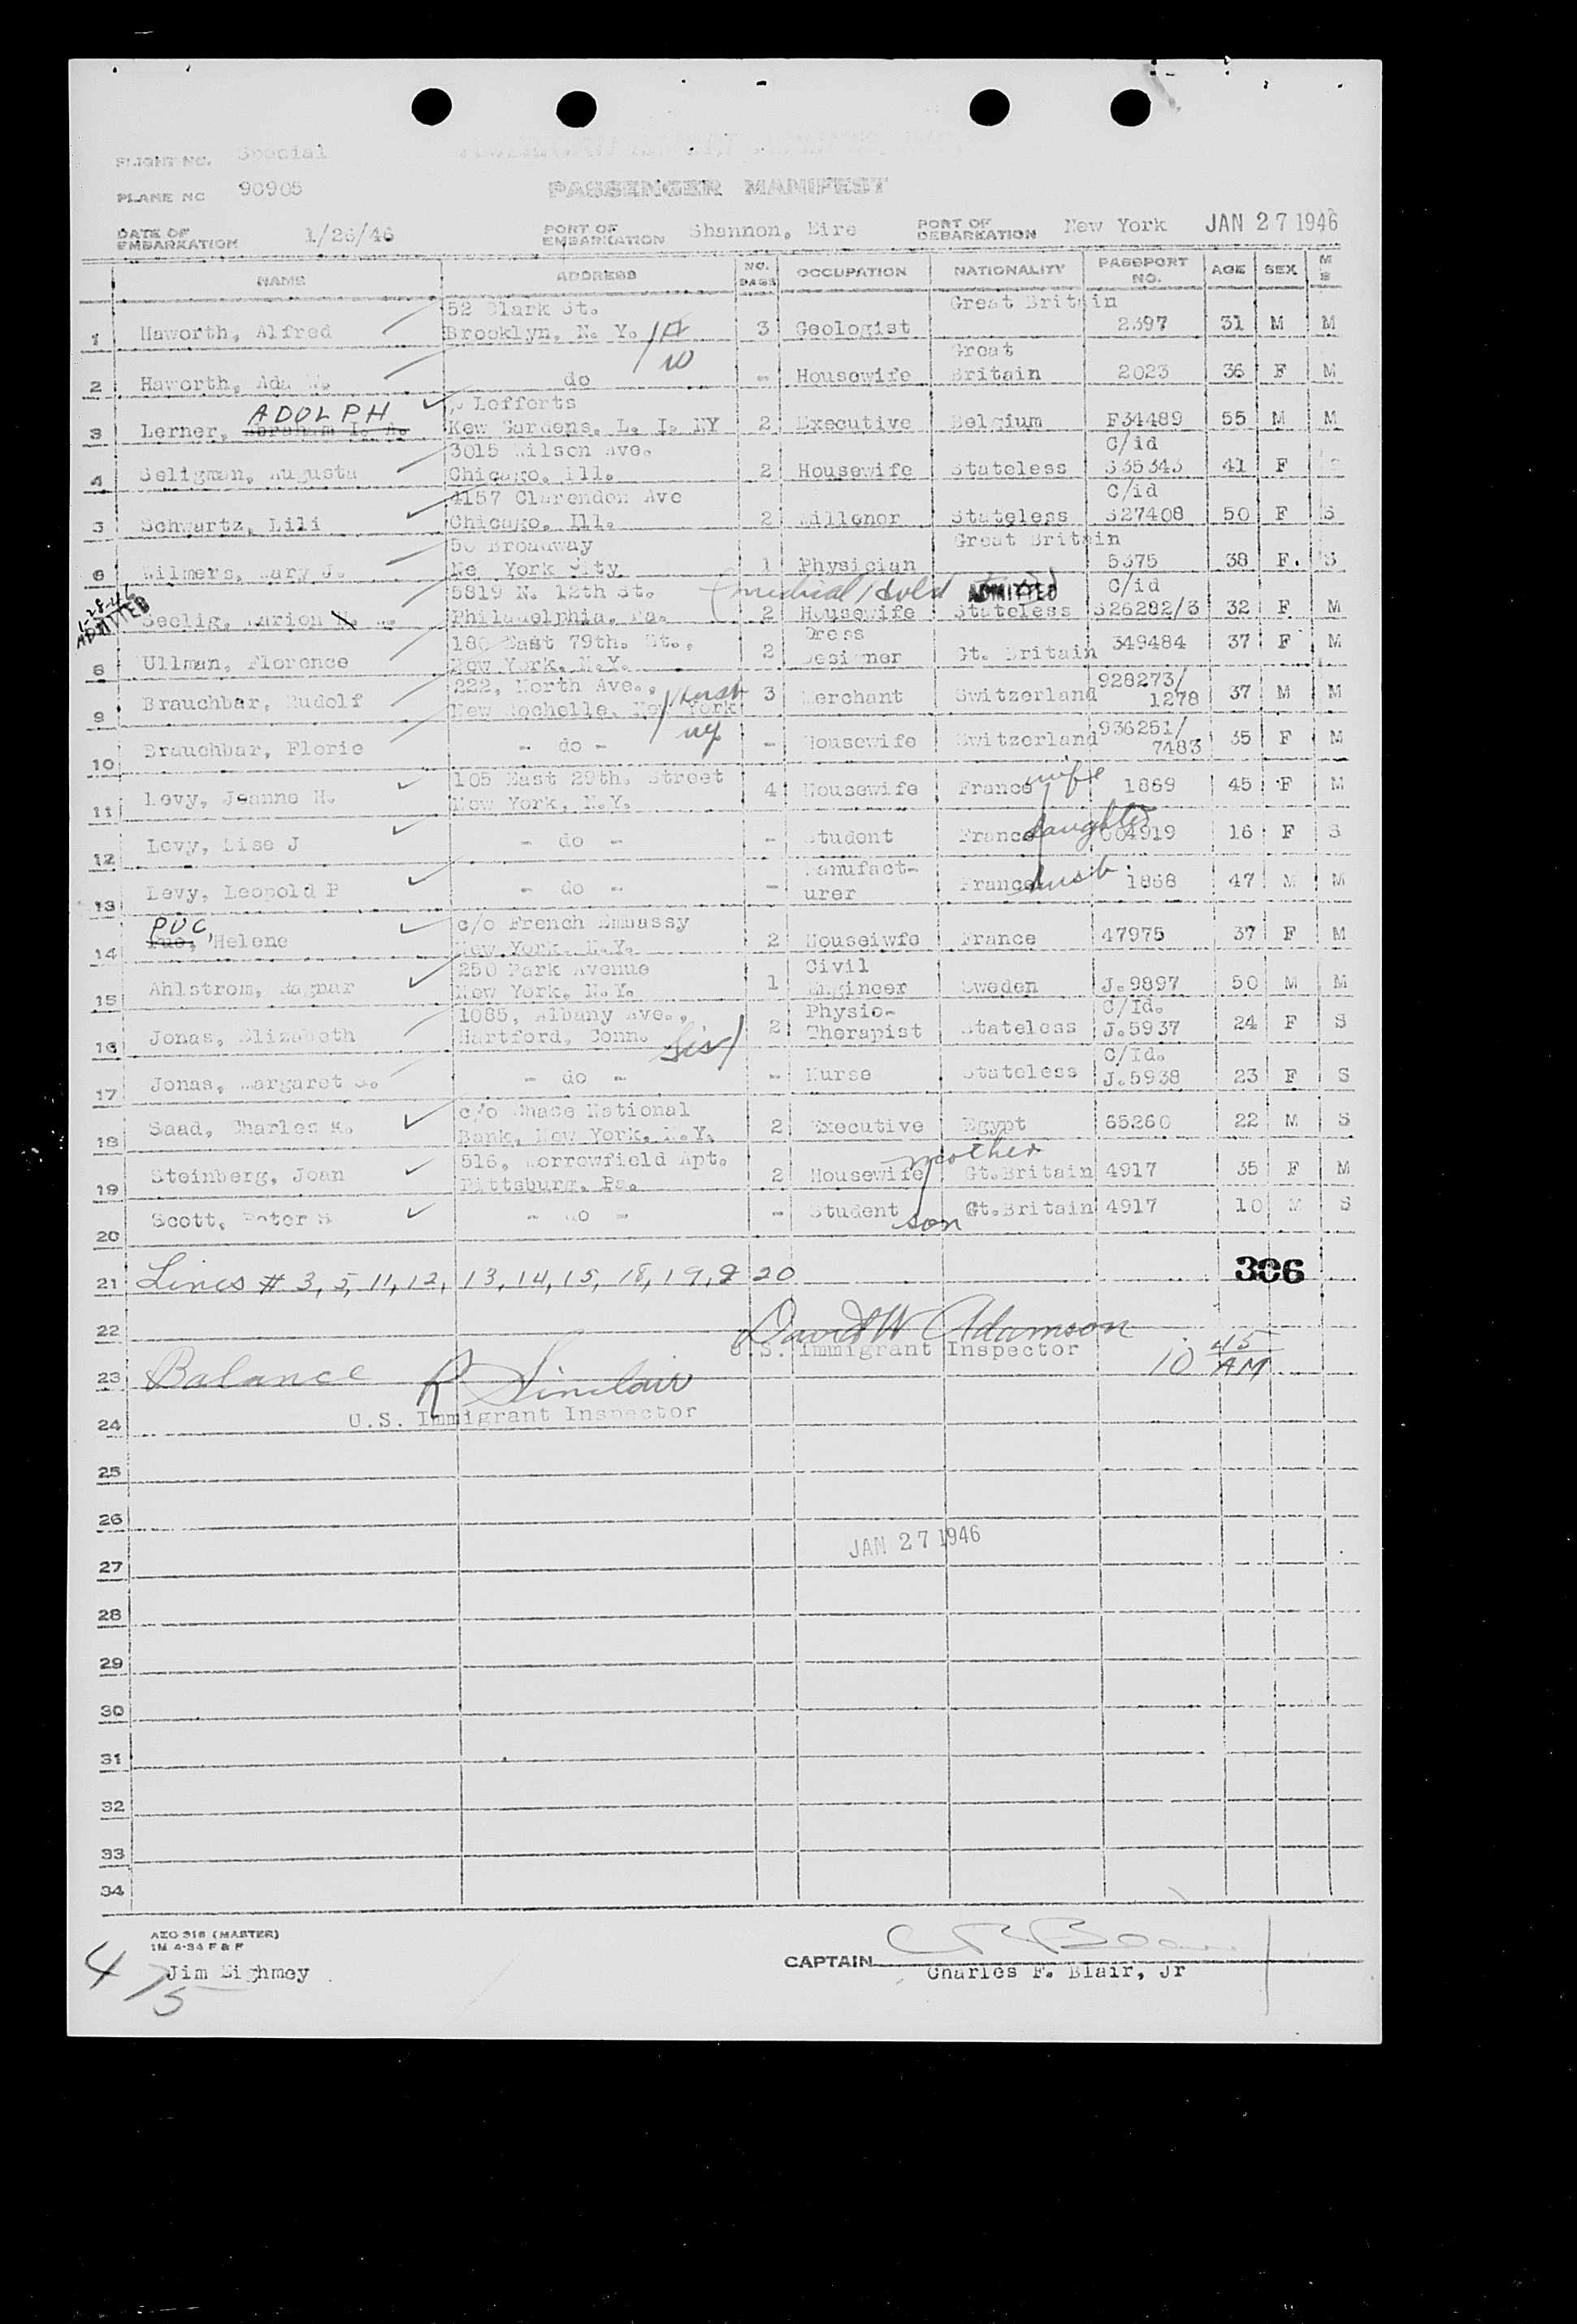 FLIGHT NO. Special
PLANE NO 90905
PASSENGER MANIFEST
DATE OF EMBARKATION 1/26/46 PORT OF EMBARKATION Shannon, Eire PORT OF DEBARKATION New York JAN 27 1946
NAME ADDRESS NO. BAGS OCCUPATION NATIONALITY PASSPORT NO. AGE SEX M S
52 Clark St. Great Britain
1 Haworth, Alfred Brooklyn, N. Y. 3 Geologist 2397 31 M M
Great
2 Haworth, Ada N. do - Housewife Britain 2023 36 F M
ADOLPH Lefferts
3 Lerner, Abraham I. A. Kew Gardens, L. I. NY 2 Executive Belgium F34489 55 M M
3015 Wilson Ave. C/id
4 Seligman, Augusta Chicago, Ill. 2 Housewife Stateless 335343 41 F
4157 Clarendon Ave C/id
5 Schwartz, Lili Chicago, Ill. 2 Millenor Stateless 327408 50 F S
50 Broadway Great Britain
6 Wilmers, Mary J. Ne York City 1 Physician 5375 38 F. S
1-28-46 ADMITTED 5819 N. 12th St. (medical Hold ADMITTED C/id
Seelig, Marion Philadelphia, Pa. 2 Housewife Stateless 326282/3 32 F M
180 East 79th. St., Dress
8 Ullman, Florence New York, N.Y. 2 Designer Gt. Britain 349484 37 F M
222, North Ave., husb 928273/
9 Brauchbar, Rudolf New Rochelle, New York 3 Merchant Switzerland 1278 37 M M
936251/
10 Brauchbar, Florie - do - wf - Housewife Switzerland 7483 35 F M
105 East 29th. Street wife
11 Levy, Jeanne H. New York, N.Y. 4 Housewife France 1869 45 F M
12 Levy, Lise J - do - - Student France daughter 004919 16 F S
Manufact-
13 Levy, Leopold P - do - - urer France husb. 1868 47 M M
PUC, c/o French Embassy
14 Puo, Helene New York, N.Y. 2 Houseiwfe France 47975 37 F M
250 Park Avenue Civil
15 Ahlstrom, Ragnar New York, N.Y. 1 Engineer Sweden J.9897 50 M M
1085, Albany Ave., Physio- C/Id.
16 Jonas, Elizabeth Hartford, Conn. 2 Therapist Stateless J.5937 24 F S
sis C/Id.
17 Jonas, Margaret S. - do - - Nurse Stateless J.5938 23 F S
c/o Chase National
18 Saad, Charles M. Bank, New York, N.Y. 2 Executive Egypt 65260 22 M S
516, Morrowfield Apt. mother
19 Steinberg, Joan Pittsburg, Pa. 2 Housewife Gt.Britain 4917 35 F M
20 Scott, Peter S - do - - Student son Gt.Britain 4917 10 M S
21 Lines # 3, 5, 11, 12, 13, 14, 15, 18, 19, & 20 306
22 David W Adamson
U.S. Immigrant Inspector 10 45 AM
23 Balance R Sinclair
24 U.S. Immigrant Inspector
25
26
JAN 27 1946
27
28
29
30
31
32
33
34
AEO 316 (MASTER)
1M 4-34 F & F
4/5 Jim Eighmey
CAPTAIN C F Blair
Charles F. Blair, Jr